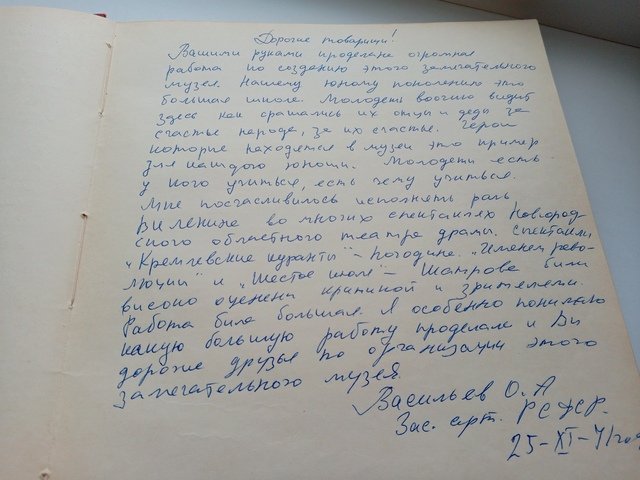 Дорогие товарищи!
Вашими руками проделана огромная
работа по созданию этого замечательного
музея. Нашему юному поколению это
большая школа. Молодежь воочию видит
здесь как сражались их отцы и деды за
счастье народа, за их счастье. Герои
которые находятся в музеи это пример
для каждого юноши. Молодежи есть
у кого учиться, есть чему учиться.
Мне посчасливилось исполнять роль
В.И Ленина во многих спектаклях Новгород-
ского областного театра драмы. Спектакли
"Кремлевские куранты" - Погодина. "Именем рево-
люции" и "Шестое июля" - Шатрова были
високо оценены критикой и зрителями.
Работа была большая. Я особенно понимаю
какую большую работу проделали и Вы
дорогие друзья по организации этого
замечательного музея.
Васильев О. А
Зас. арт. РСФСР.
25-XI-71год